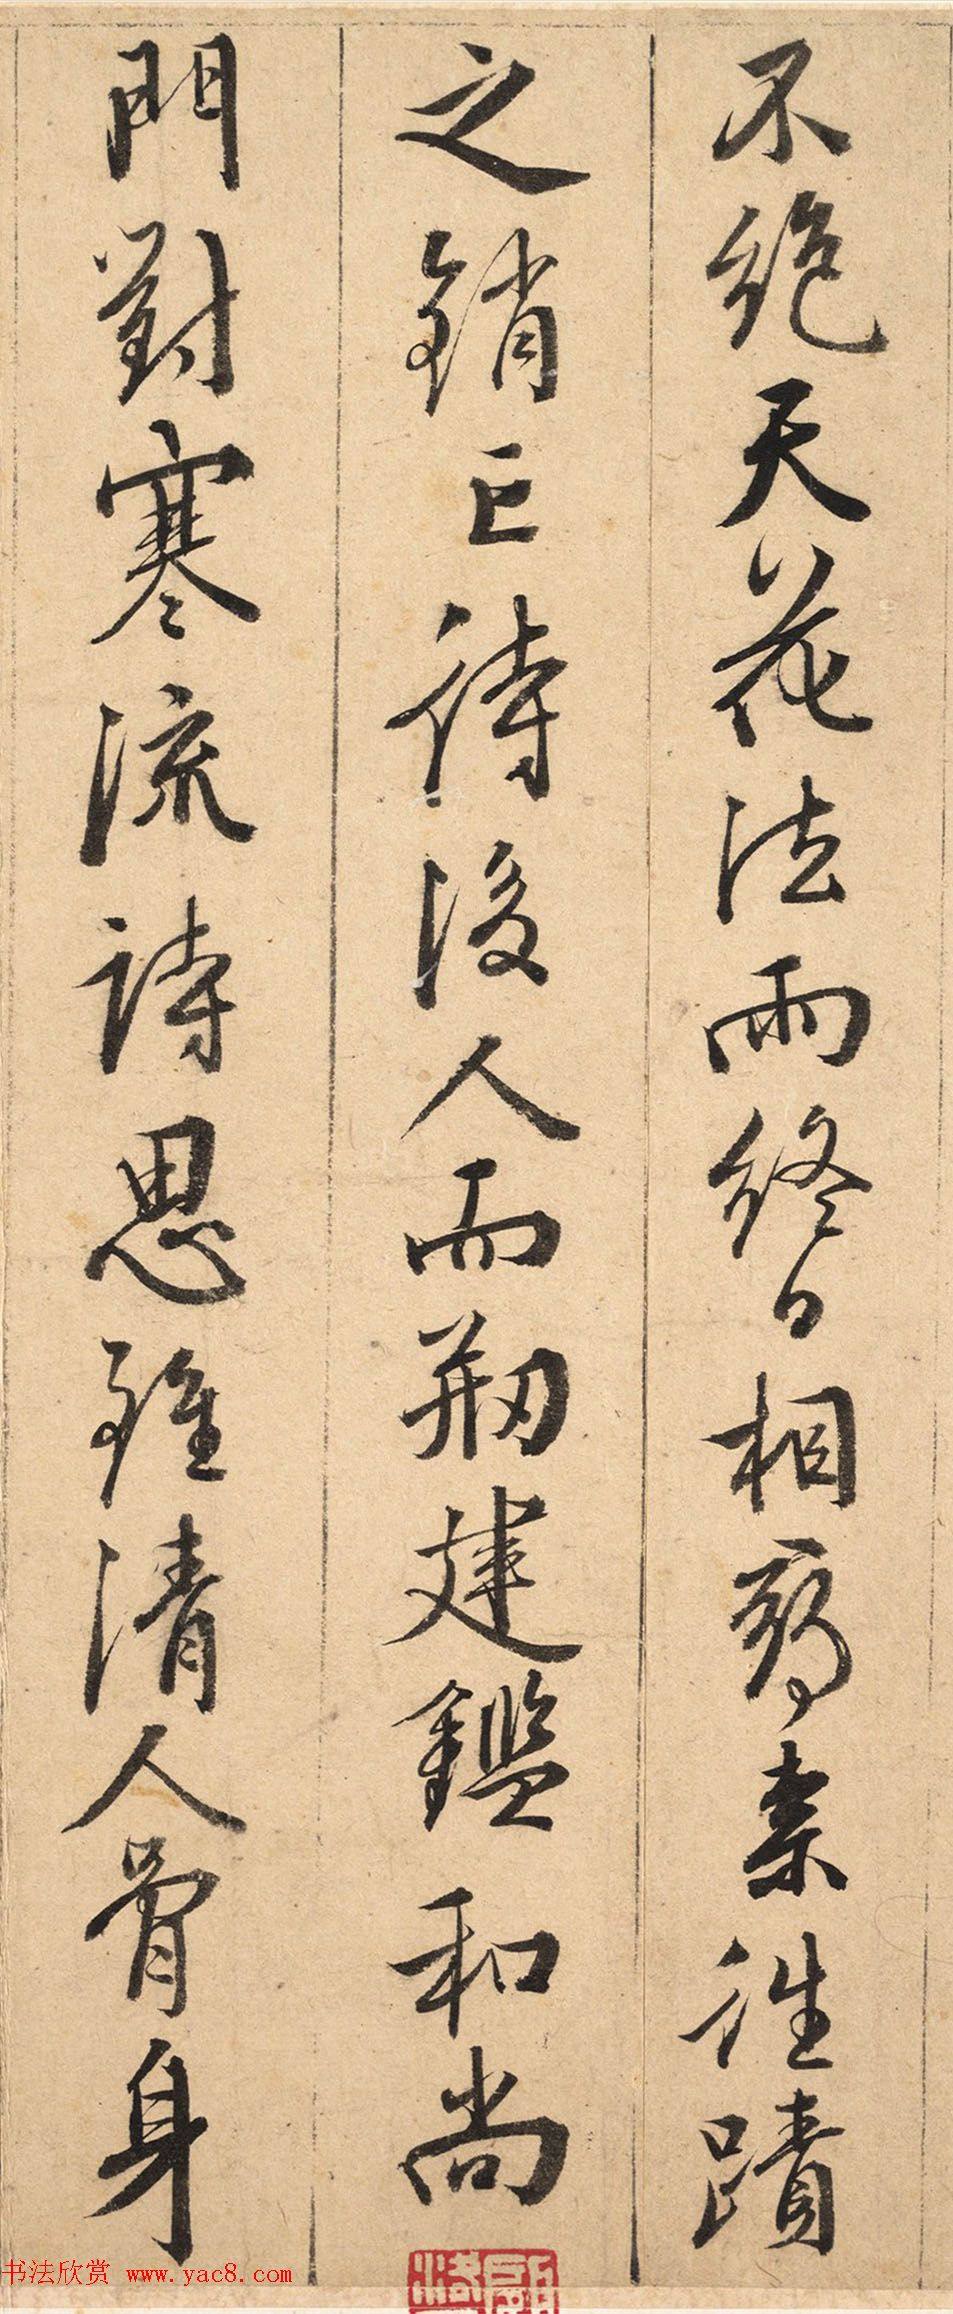 不絕天花法雨終日相務素往蹟
之銷亡待後人而刱建鑑和尚
門對寒流詩思雖清人骨身
书法欣赏 www.yac8.com